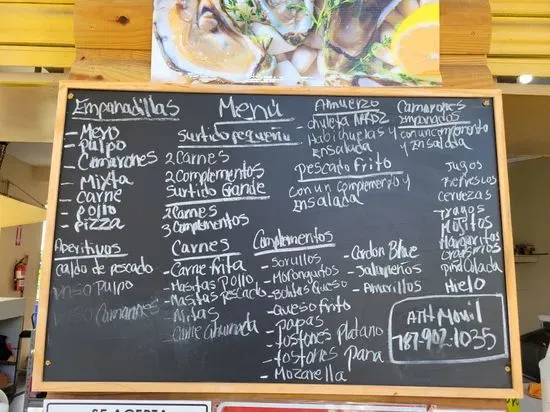 Menú
Empanadillas
- Mero
- Pulpo
- Camarones
- Mixta
- Carne
- pollo
- pizza
Aperitivos
Caldo de pescado
Vaso Pulpo
Vaso Camarones
Surtido pequeño
2 Carnes
2 Complementos
Surtido Grande
2 Carnes
3 Complementos
Carnes
- Carne frita
- Masitas Pollo
- Masitas Pescado
- Alitas
- Carne Ahumada
Almuerzo
- chuleta
Habichuelas y
Ensalada
pescado frito
con un complemento y
Ensalada
Camarones
Empanados
con un complemento
y Ensalada
Complementos
- Sorullos
- Mofonguitos
- Bolitas Queso
- Queso frito
- Papas
- Tostones Platano
- Tostones Pana
- Mozarella
- Cordon Blue
- Jalapeños
- Amarillos
Jugos
Refrescos
Cervezas
Tragos
Mojitos
Margaritas
Piña Colada
Hielo
ATH Movil
787-902-1035
SE ACEPTA